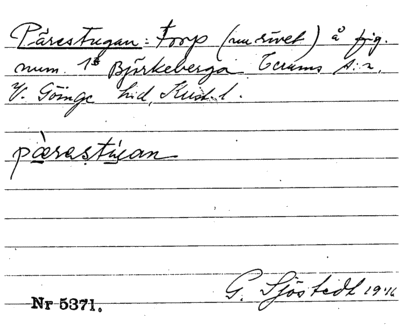 Pärestugan: torp (nu rivet) å fig.
num. 1⁵ Björkeberga Verums s:n.
V. Göinge hd, Krist. l.
pärestu̇gan
G. Sjöstedt 1946
Nr 5371.